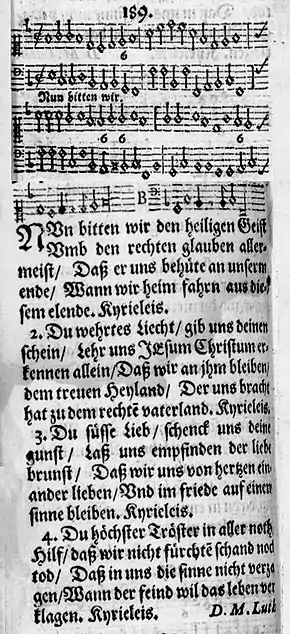 189.
Nun bitten wir.
6
6
6
6
B
NVn bitten wir den heiligen Geist
Vmb den rechten glauben aller-
meist/ Daß er uns behüte an unserm
ende/ Wann wir heim fahrn aus die-
sem elende. Kyrieleis.
2. Du wehrtes Liecht/ gib uns deinen
schein/ Lehr uns JEsum Christum er-
kennen allein/ Daß wir an jhm bleiben/
dem treuen Heyland/ Der uns bracht
hat zu dem rechtē vaterland. Kyrieleis.
3. Du süsse Lieb/ schenck uns deine
gunst/ Laß uns empfinden der liebe
brunst/ Daß wir uns von hertzen ein-
ander lieben/ Vnd im friede auf einen
sinne bleiben. Kyrieleis.
4. Du höchster Tröster in aller noth
Hilf/ daß wir nicht fürchtē schand noch
tod/ Daß in uns die sinne nicht verza
gen/ Wann der feind wil das leben ver
klagen. Kyrieleis. D. M. Luth